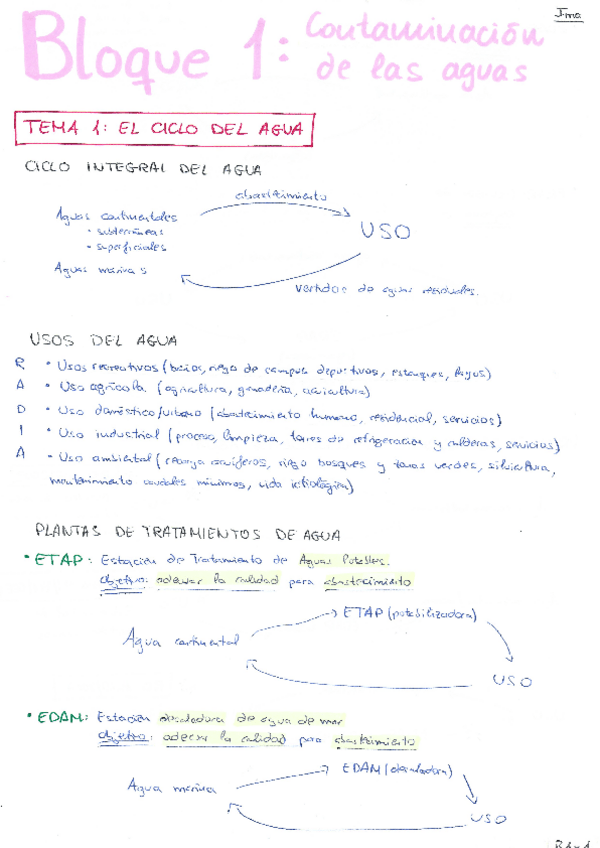 Ima
Bloque 1: Contaminación
de las aguas
TEMA 1: EL CICLO DEL AGUA
CICLO INTEGRAL DEL AGUA
abastecimiento
Aguas continentales
• subterráneas
• superficiales
USO
Aguas marinas
vertidos de aguas residuales.
USOS DEL AGUA
R • Usos recreativos (baños, riego de campos deportivos, estanques, lagos)
A • Uso agrícola (agricultura, ganadería, acuicultura)
D • Uso doméstico/urbano (abastecimiento humano, residencial, servicios)
I • Uso industrial (proceso, limpieza, torres de refrigeración y calderas, servicios)
A • Uso ambiental (recarga acuíferos, riego bosques y zonas verdes, silvicultura,
mantenimiento caudales mínimos, vida ictiológica)
PLANTAS DE TRATAMIENTOS DE AGUA
• ETAP: Estación de Tratamiento de Aguas Potables.
Objetivo: adecuar la calidad para abastecimiento
ETAP (potabilizadora)
Agua continental
USO
• EDAM: Estación desaladora de agua de mar
Objetivo: adecuar la calidad para abastecimiento
EDAM (desaladora)
Agua marina
USO